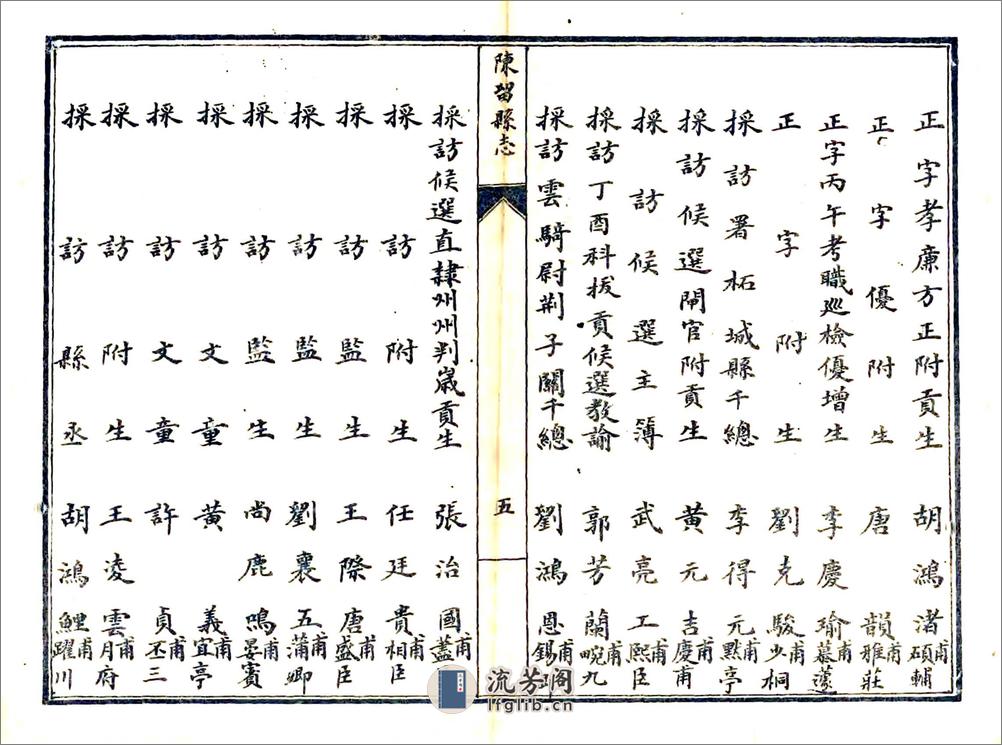 正字孝廉方正附貢生 胡鴻渚碩輔甫
正字優附生 唐韻雅莊甫
正字丙午考職巡檢優增生 李慶瑜慕蘧甫
正字附生 劉克駿少桐甫
採訪署柘城縣千總 李得元默亭甫
採訪候選閘官附貢生 黃元吉慶甫甫
採訪候選主簿 武亮工熙臣甫
採訪丁酉科拔貢候選教諭 郭芳蘭畹九甫
採訪雲騎尉荆子關千總 劉鴻恩錫甫
陳留縣志
五
採訪候選直隸州州判歲貢生 張治國藎甫
採訪附生 任廷貴相臣甫
採訪監生 王際唐盛臣甫
採訪監生 劉襄五蒲卿甫
採訪監生 尚鹿鳴宴賓甫
採訪文童 黃義宜亭甫
採訪文童 許貞丕三甫
採訪附生 王凌雲月府甫
採訪縣丞 胡鴻鯉躍川甫
流芳阁
lfglib.cn